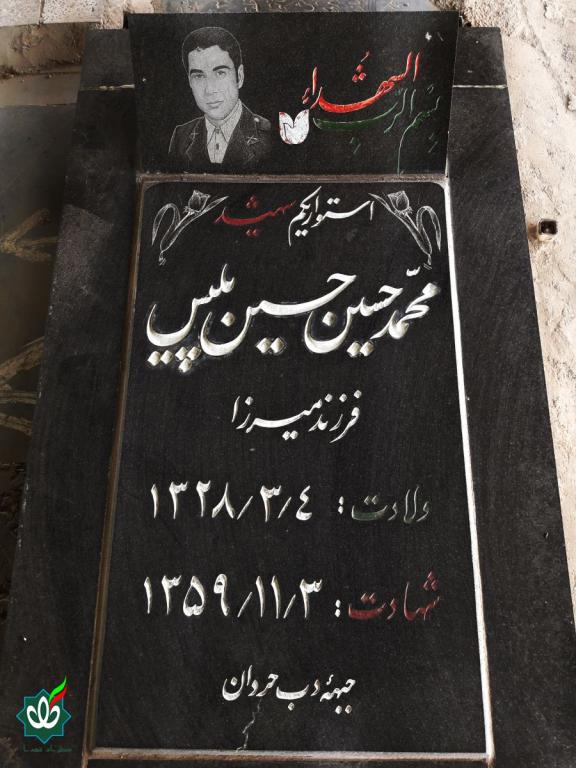 بسم الرب الشهداء
استوار یکم شهید
محمّد حسین حسین پلیس
فرزند میرزا
ولادت: ۱۳۲۸/۳/٤
شهادت: ۱۳۵۹/۱۱/۳
جبهه دب حردان